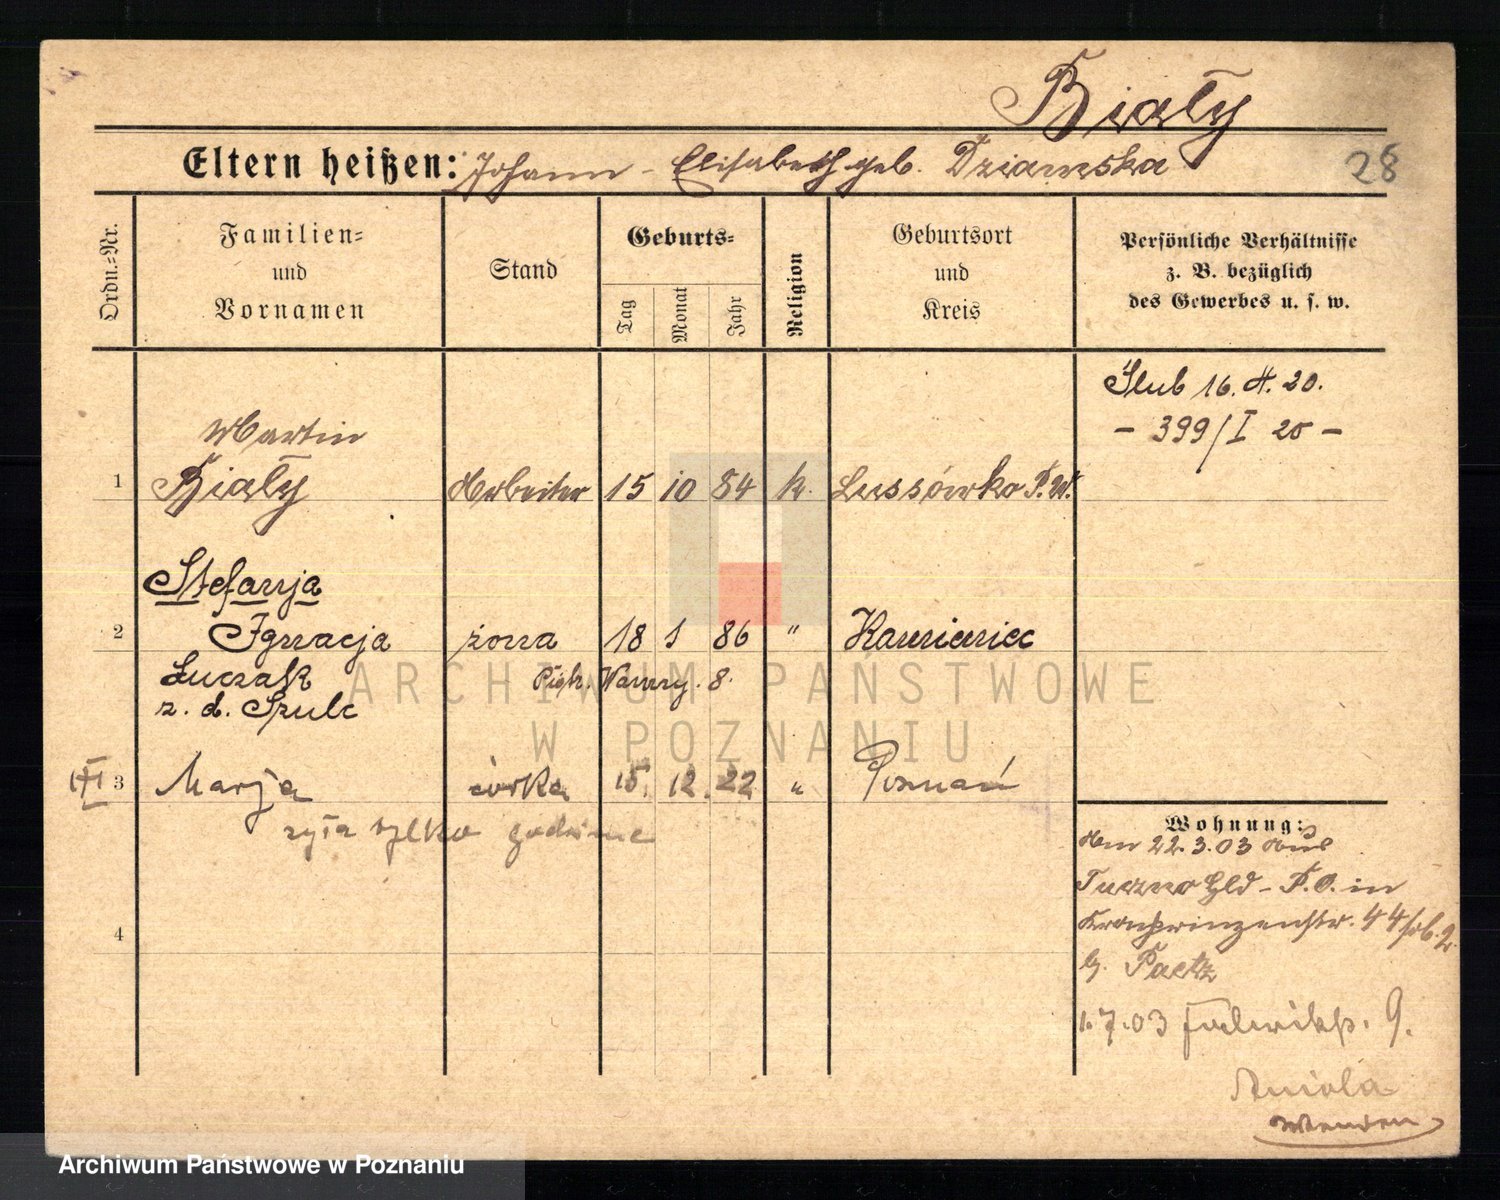 Biały
Eltern heißen: Johann - Elisabeth geb. Dziamska
28
Ordn.=Nr.
Familien=
und
Vornamen
Stand
Geburts=
Tag
Monat
Jahr
Religion
Geburtsort
und
Kreis
Persönliche Verhältnisse
z. B. bezüglich
des Gewerbes u. s. w.
Ślub 16. 4. 20.
- 399/I 20 -
Martin
1 Biały Arbeiter 15 10 84 k. Lussówko P.W.
Stefanja
2 Ignacja żona 18 1 86 " Kamieniec
Łuczak 8.
z. d. Szulc
3 Marja córka 15. 12. 22 " Poznań
żyła tylko godzinę
4
Wohnung:
Am 22.3.03 aus
Tuczno Gld - P.O. in
Kronprinzenstr. 44
b. Paetz
1.7.03 9.
Aniola
Wenden
ARCHIWUM PAŃSTWOWE
W POZNANIU
Archiwum Państwowe w Poznaniu